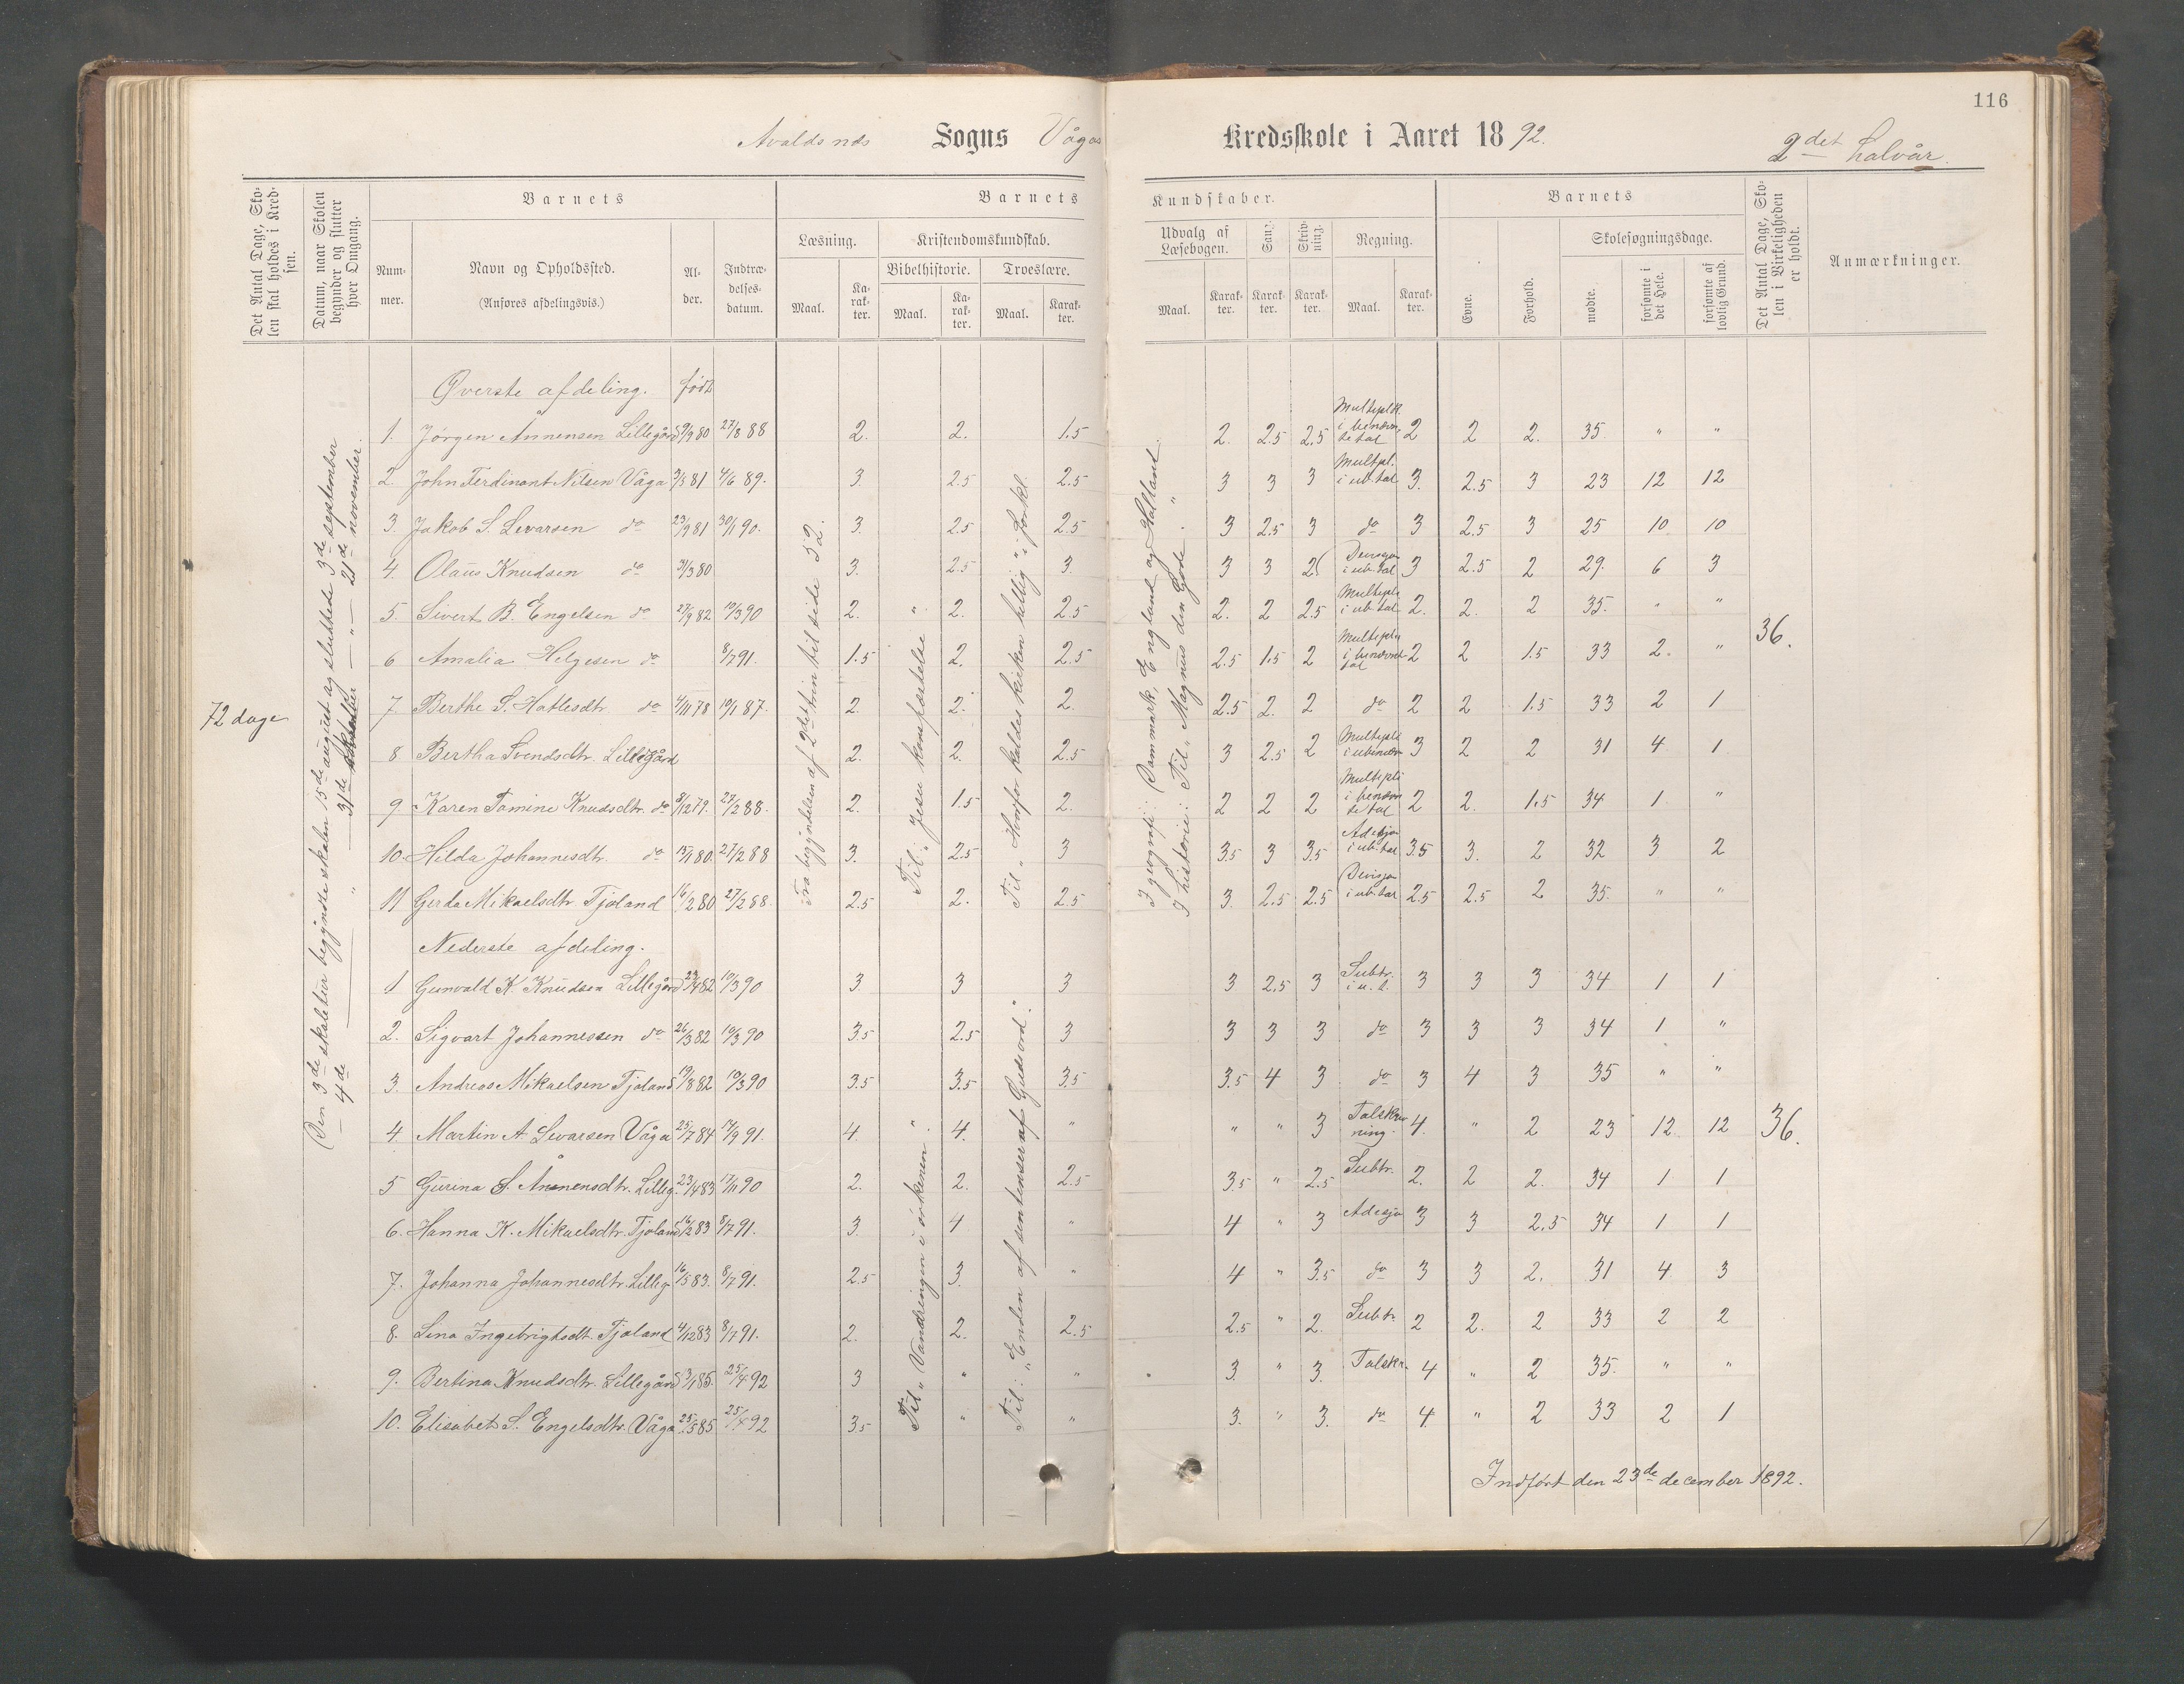 116
Avaldsnes Sogns Vågas Kredsskole i Aaret 1892. 2det halvår.
Det Antal Dage, Skolen skal holdes i Kredsen.
Datum, naar Skolen begynder og slutter hver Omgang.
Barnets
Nummer.
Navn og Opholdssted.
(Anføres afdelingsvis.)
Alder.
Indtrædelsesdatum.
Barnets Kundskaber.
Læsning.
Maal. Karakter.
Kristendomskundskab.
Bibelhistorie. Troeslære.
Maal. Karakter. Maal. Karakter.
Udvalg af Læsebogen.
Maal. Karakter.
Sang. Karakter.
Skrivning. Karakter.
Regning.
Maal. Karakter.
Barnets
Evne. Forhold.
Skolesøgningsdage.
mødte. forsømte i det Hele. forsømte af lovlig Grund.
Det Antal Dage, Skolen i Virkeligheden er holdt.
Anmærkninger.
72 dage
Den 3de skoletur begyndte skolen 15de august og sluttede 3de september
— 4de — " — 31de oktober — " — 21de november.
Fra begyndelsen af 2det trin til side 52.
Til: Jesu henfærdelse
Til „Hvorfor kaldes kirken hellig": forkl.
I geografi: Danmark, England og Holland.
I historie: Til „Magnus den Gode".
Øverste afdeling. født
1. Jørgen Ånnensen Lillegård 5/9 80 27/8 88 2. 2. 1.5 2. 2.5 2.5 Multiplk. i benævnte tal 2 2 2. 35 " "
2. John Ferdinant Nilsen Våga 3/3 81 4/6 89. 3. 2.5 2.5 3 3 3 Multpl. i ub. tal 3. 2.5 3 23 12 12
3. Jakob S. Sivarsen do 23/9 81 30/1 90. 3. 2.5 2.5 3 2.5 3 do 3 2.5 3 25 10 10
4. Olaus Knudsen do 31/3 80 3. 2.5 3. 3 3 2. Devisjon i ub. tal 3 2.5 2 29. 6 3
5. Sivert B. Engelsen do 27/9 82 10/3 90 2. " 2. 2.5 2. 2 2.5 Multipli i ub. tal 2. 2. 2 35. " "
6 Amalia Helgesen do 8/7 91. 1.5 2. 2.5 2.5 1.5 2 Multipli i benævnt tal 2 2 1.5 33 2. "
7. Berthe S. Hatlesdtr. do 4/11 78 10/1 87. 2. 2. 2. 2.5 2. 2 do 2 2 1.5 33 2 1
8 Bertha Svendsdtr. Lillegård 2. 2. 2.5 3 2.5 2 Multipli i ubenævn 3 2 2 31 4 1
9 Karen Tomine Knudsdtr. do 8/12 79. 23/2 88. 2. 1.5 2. 2 2 2 Multipli i benævnte tal 2 2. 1.5 34 1 "
10. Hilda Johannesdtr. do 15/1 80. 27/2 88 3. 2.5 3 3.5 3 3.5 Adisjon i ub. tal 3.5 3. 2 32 3 2
11 Gerda Mikaelsdtr. Tjøland 16/2 80 27/2 88. 2.5 2. 2.5 3. 2.5 2.5 Devisjon i ub. tal 2.5 2.5 2 35. " "
36.
Nederste afdeling.
Til „Vandringen i ørkenen".
Til: „Enden af sentenser af Guds ord".
1 Gunvald K. Knudsen Lillegård 23/4 82 10/3 90 3 3 3 3 2.5 3 Subtr. i u. t. 3 3 3 34 1 1
2. Sigvart Johannessen do 26/3 82 10/3 90 3.5 2.5 3 3 3 3 do 3 3 3 34 1 "
3. Andreas Mikaelsen Tjøland 19/8 82 10/3 90 3.5 3.5 3.5 3.5 4 3 do 3 4 3 35 " "
4 Martin A. Sivarsen Våga 25/7 84 17/9 91. 4. " 4. " " " 3 Talskrivning. 4. " 2 23 12 12
5 Gurina S. Ånnensdtr. Lilleg. 23/4 83 17/11 90 2. 2. 2.5 3.5 " 2.5 Subtr. 2. 2 2. 34 1 1
6. Hanna K. Mikaelsdtr. Tjøland 16/2 83 8/7 91. 3. 4 " 4 " 3 Adisjo 3 3 2.5 34 1 1
7. Johanna Johannesdtr. Lilleg 16/5 83. 8/7 91. 2.5 3. " 4 " 3.5 do 3 3 2. 31 4 3
8. Lina Ingebrigtsdt. Tjøland 4/12 83 8/7 91. 2. 2. 2.5 2.5 " 2. Subtr. 2 2. 2 33 2 2
9. Bertina Knudsdtr. Lillegård 3/1 85. 25/4 92 3 " " 3. " 3. Talskr. 4 " 2 35. " "
10. Elisabet S. Engelsdtr. Våga 25/5 85 25/4 92 3.5 " " 3. " 3. do 4. " 2 33 2 1
36.
Indført den 23de december 1892.